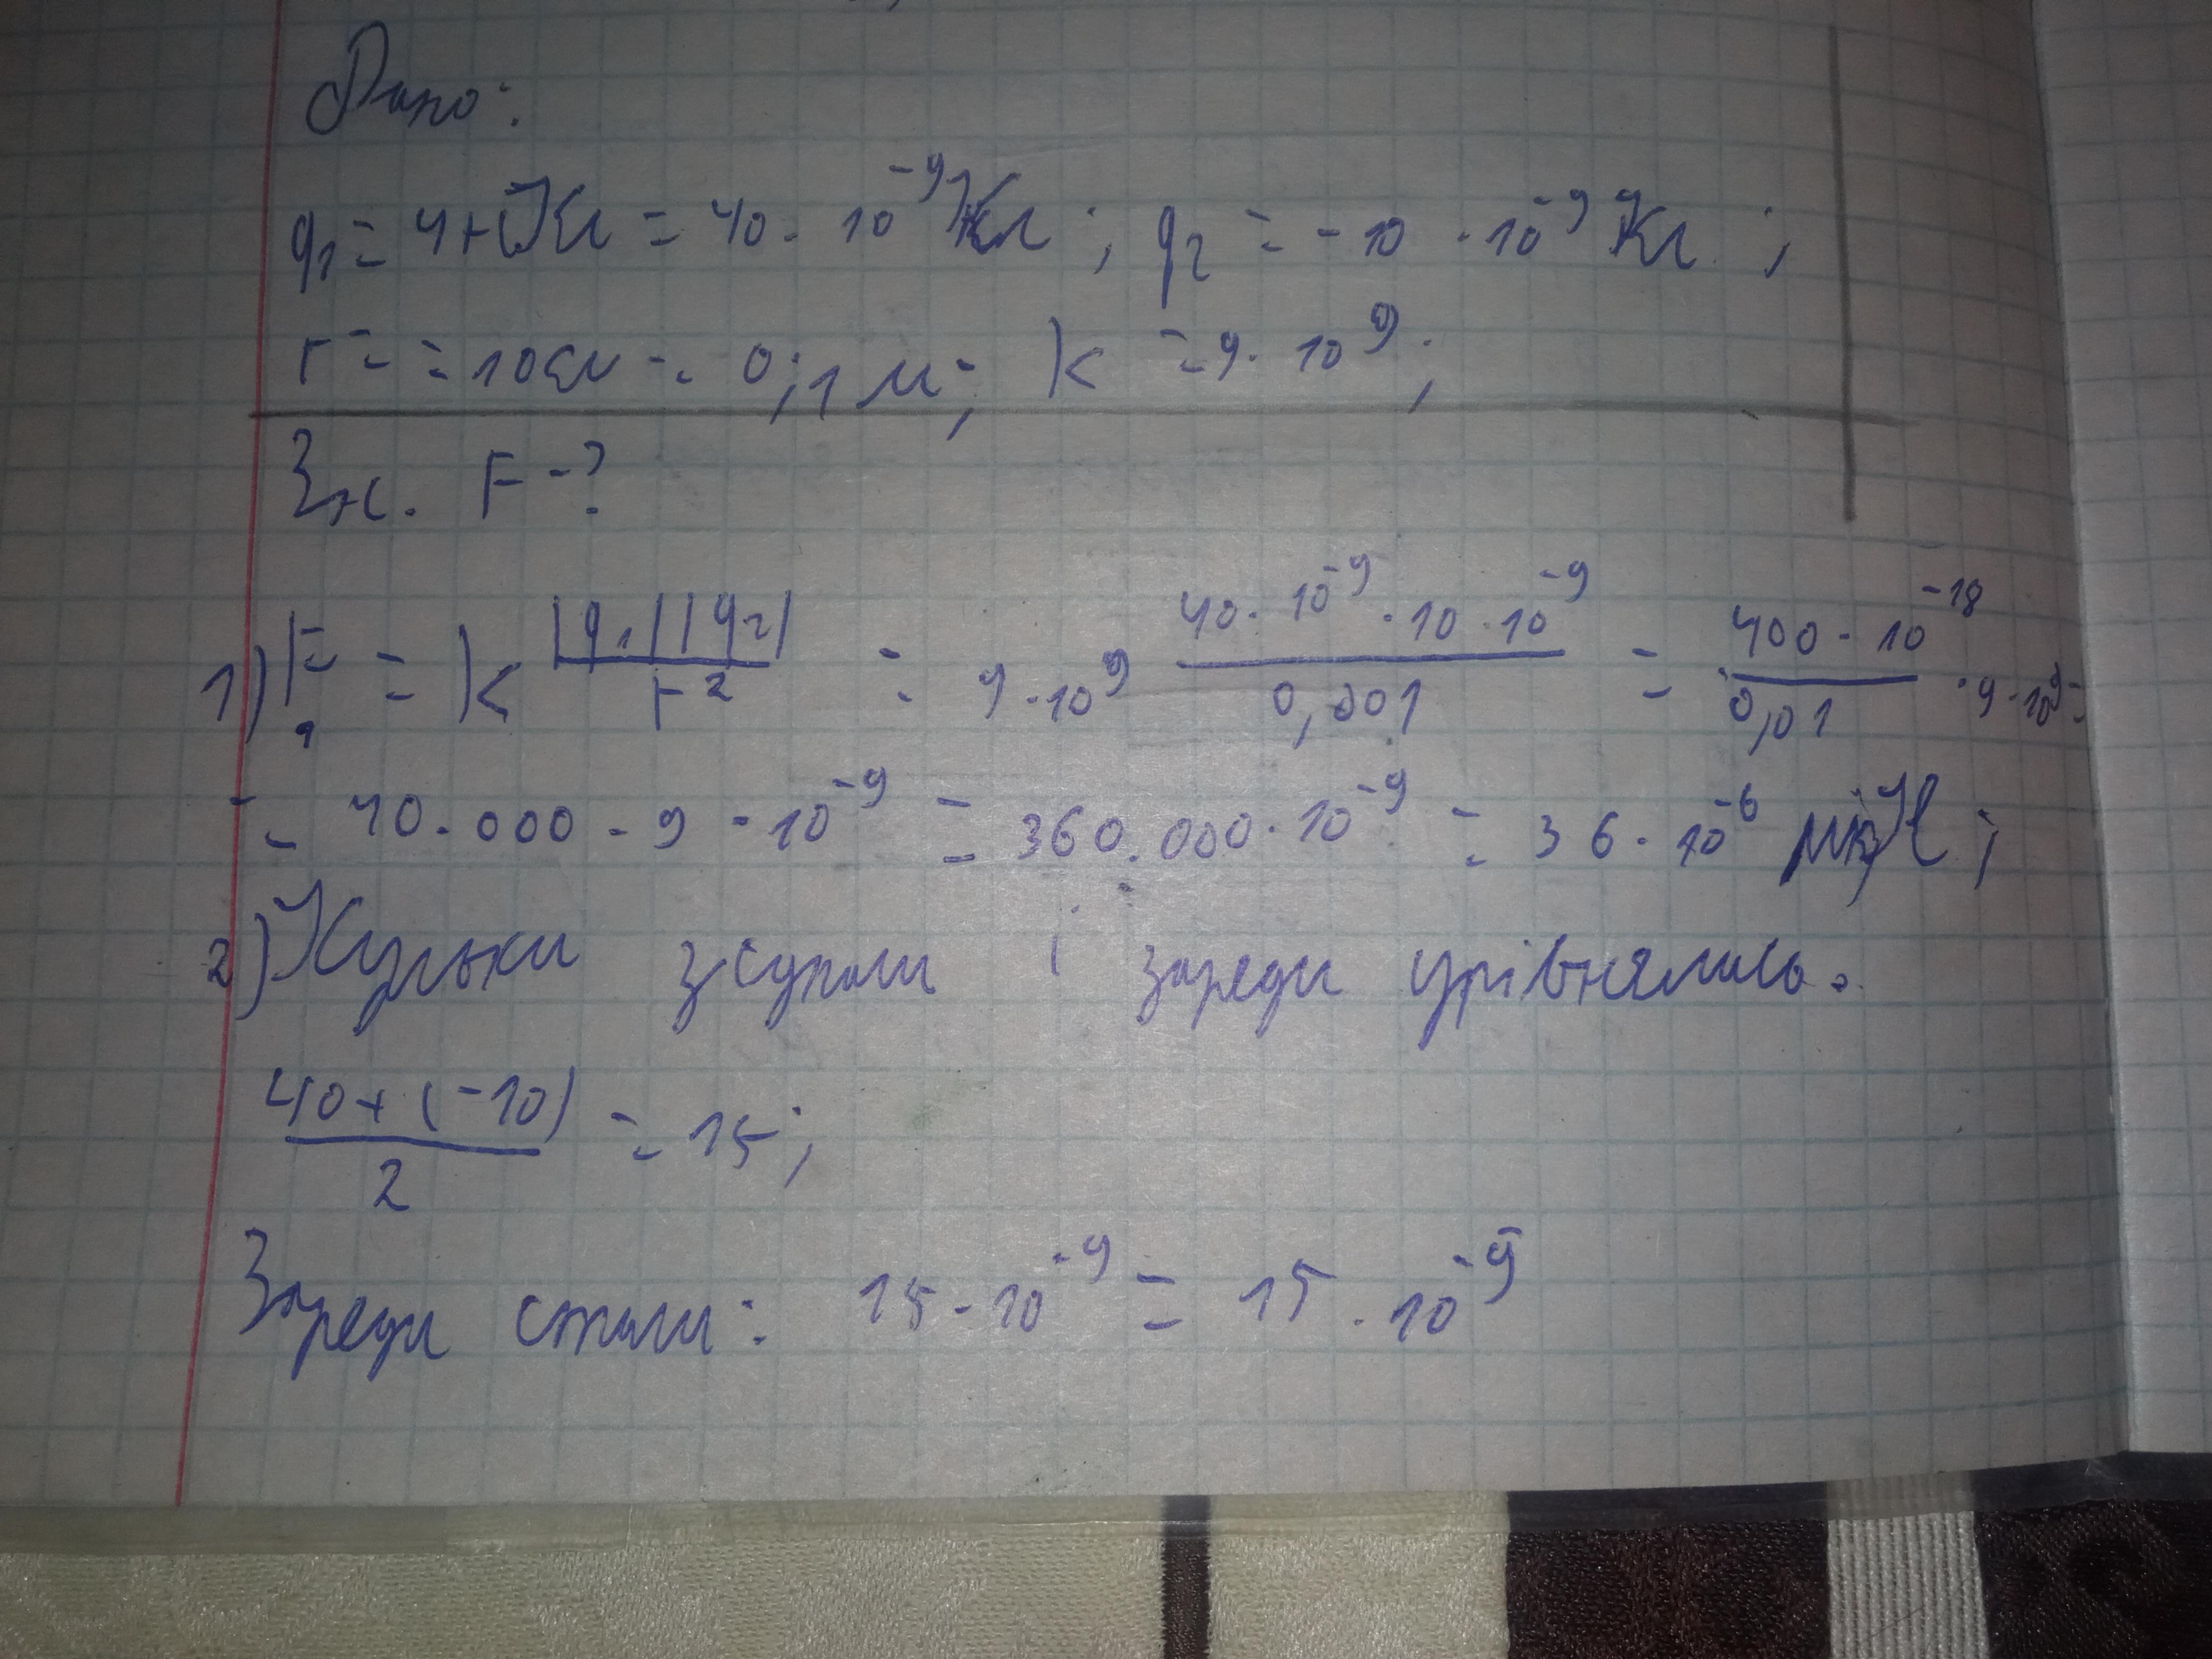 Дано:
q₁ = 4нКл = 40 · 10⁻⁹ Кл; q₂ = -10 · 10⁻⁹ Кл;
r = = 10см = 0,1 м; k = 9 · 10⁹;
Зн. F - ?
1) F = k |q₁||q₂| / r² = 9 · 10⁹ 40 · 10⁻⁹ · 10 · 10⁻⁹ / 0,001 = 400 · 10⁻¹⁸ / 0,01 · 9 · 10⁹ =
= 40.000 · 9 · 10⁻⁹ = 360.000 · 10⁻⁹ = 36 · 10⁻⁶ мкН;
2) Кульки зсунали і заряди урівнялись.
40 + (-10) / 2 = 15;
Заряди стали: 15 · 10⁻⁹ = 15 · 10⁻⁹